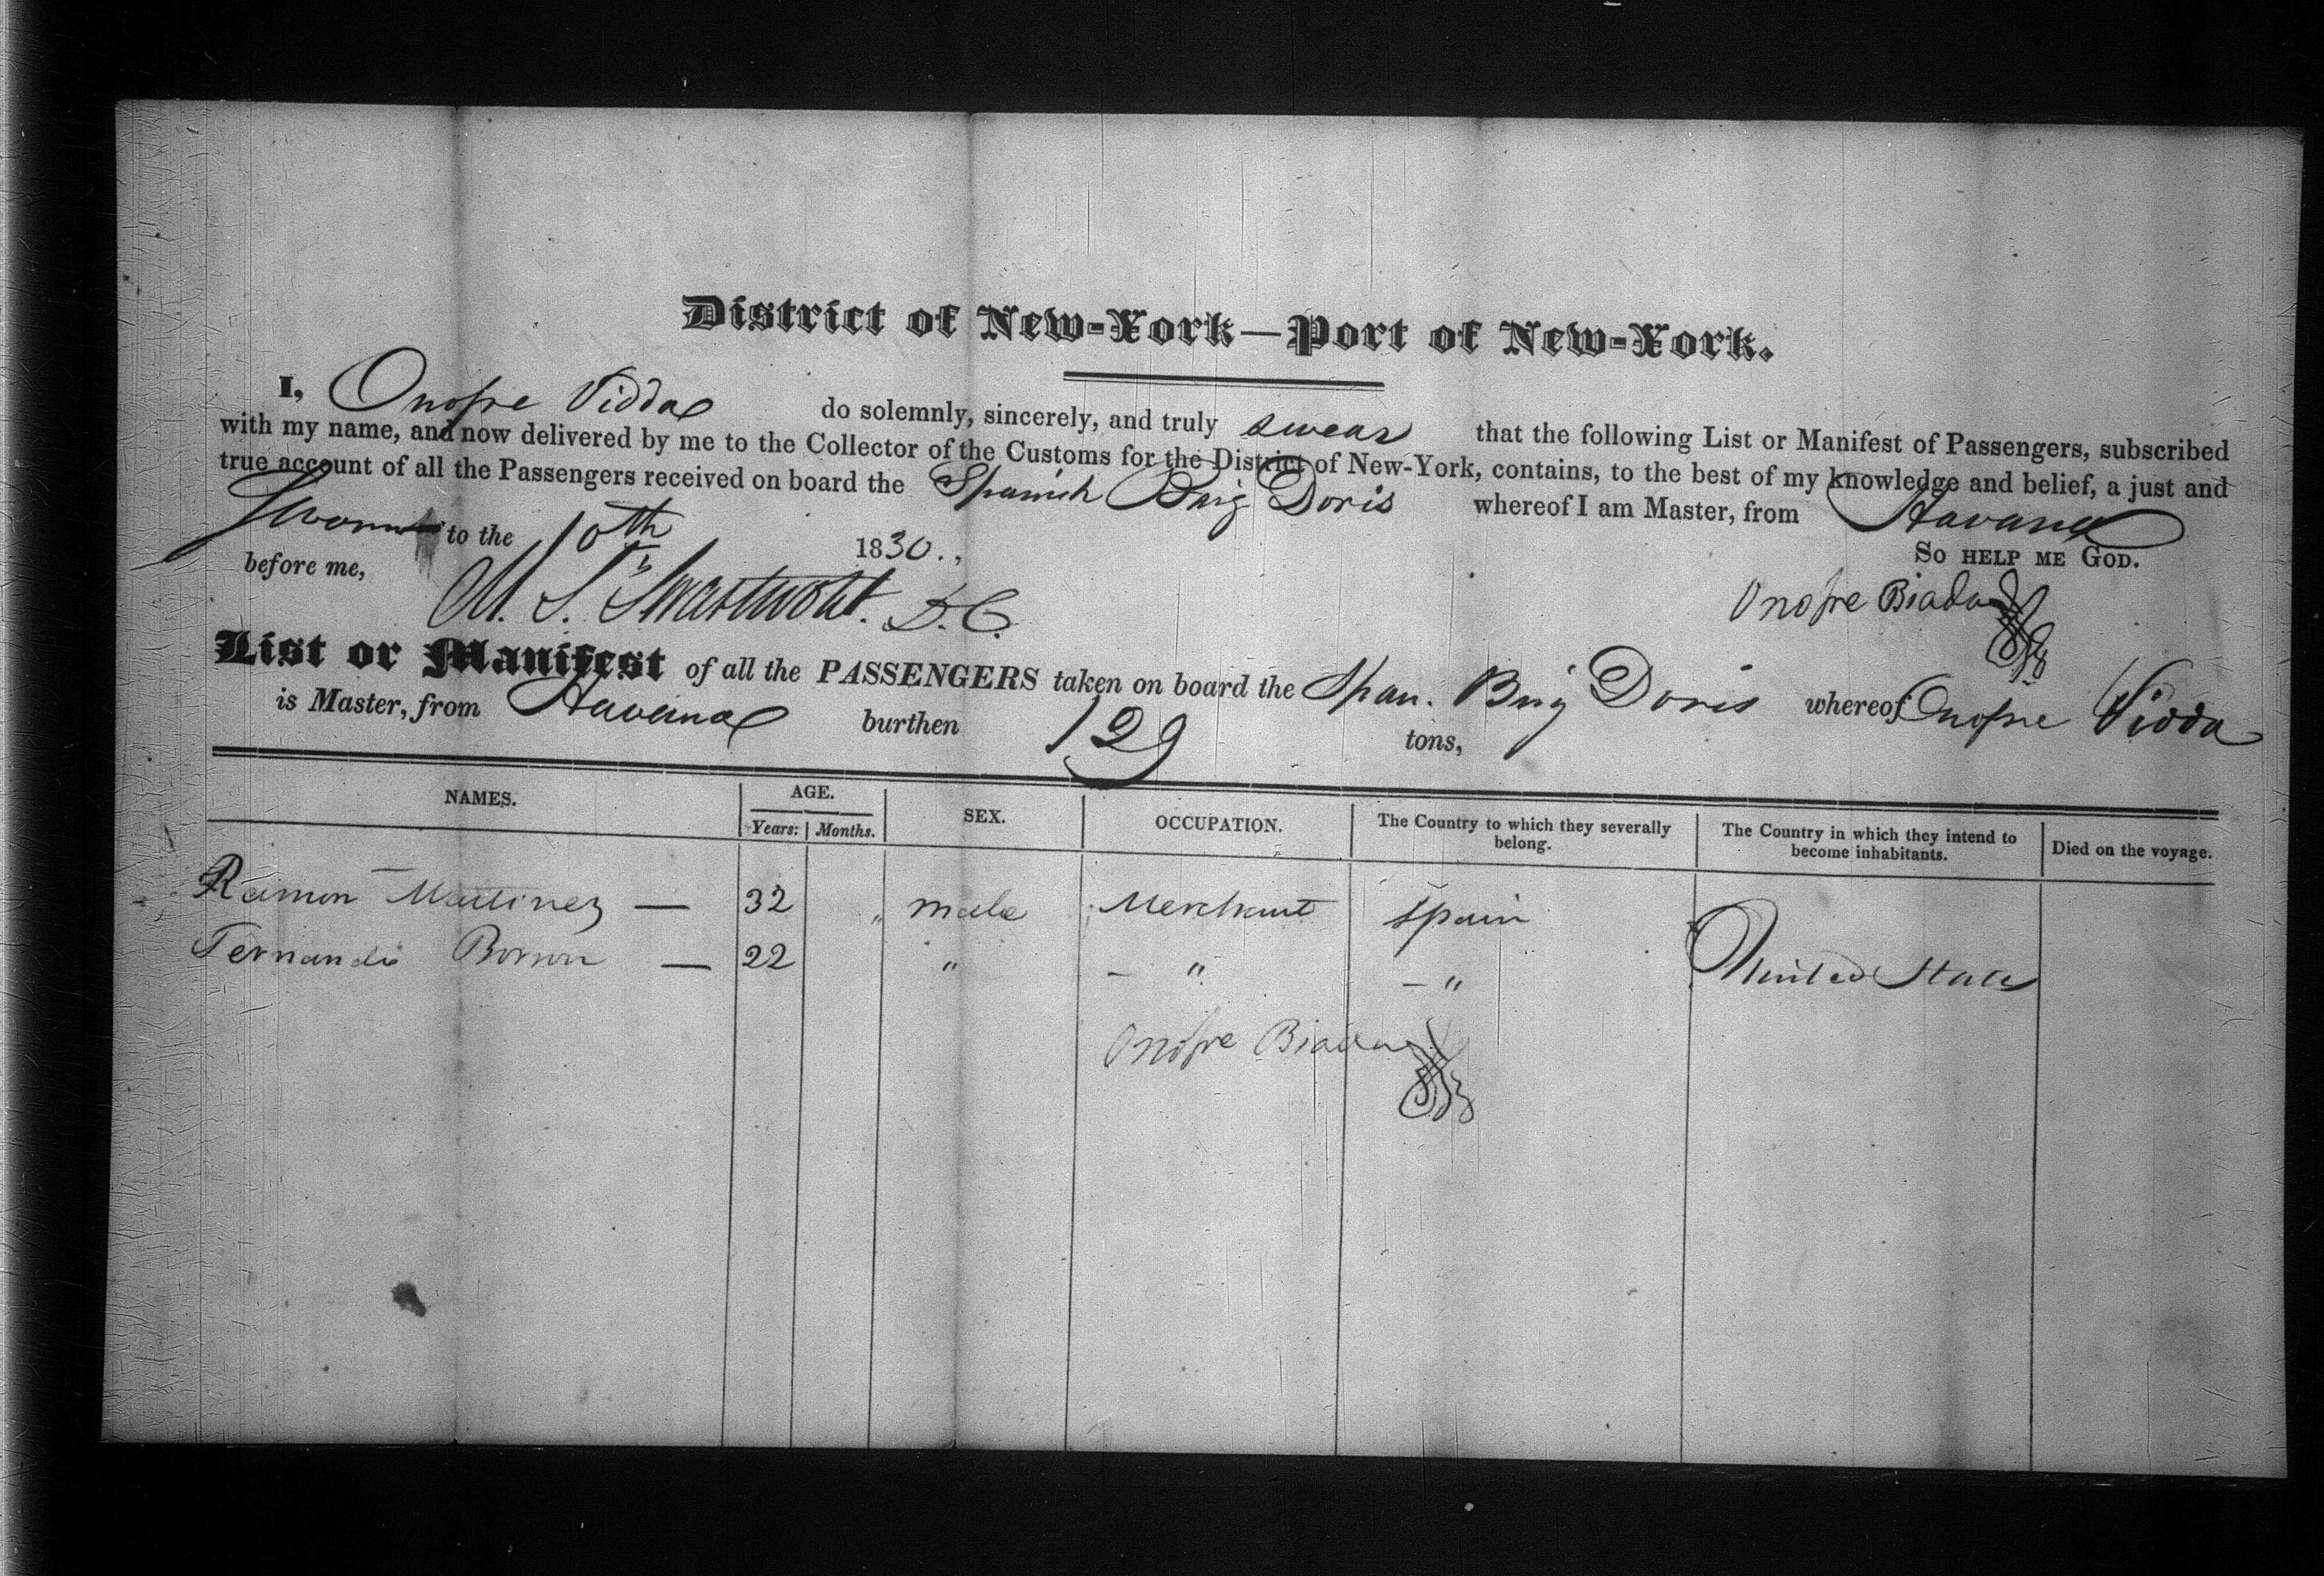 District of New-York—Port of New-York.
I, Onofre Vidda do solemnly, sincerely, and truly swear that the following List or Manifest of Passengers, subscribed
with my name, and now delivered by me to the Collector of the Customs for the District of New-York, contains, to the best of my knowledge and belief, a just and
true account of all the Passengers received on board the Spanish Brig Doris whereof I am Master, from Havana
Sworn to the 10th 1830.,
So help me God.
before me, M. S. Swartwout. D.C.
Onofre Biada
List or Manifest of all the PASSENGERS taken on board the Span. Brig Doris whereof Onofre Vidda
is Master, from Havana burthen 129 tons,
NAMES. AGE. SEX. OCCUPATION. The Country to which they severally belong. The Country in which they intend to become inhabitants. Died on the voyage.
Years: Months.
Ramon Martinez — 32 " male Merchant Spain
Fernando — 22 " — " — " United States
Onofre Biada